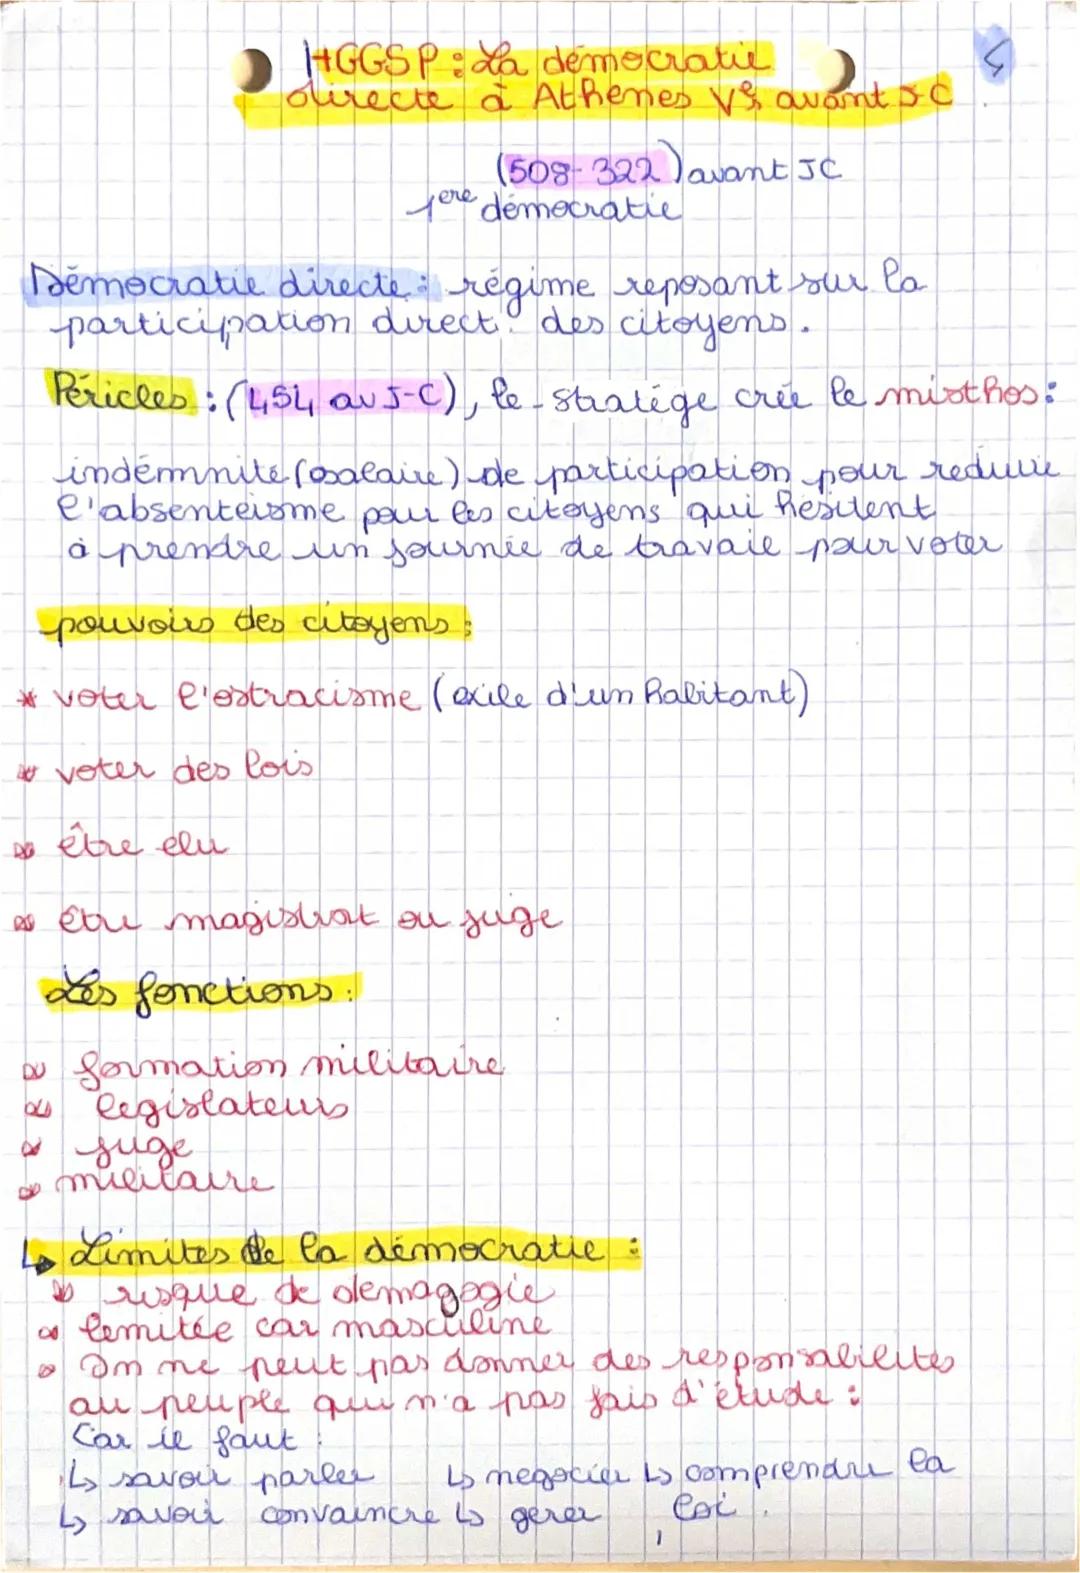 HGGSP : La démocratie
directe à Athènes Ve avant JC
(508-322) avant JC
1ère démocratie
Démocratie directe : régime reposant sur la
participation direct des citoyens.
Péricles : (454 av J-C), le stratége crée le misthos :
indémnité (salaire) de participation pour reduire
l'absenteisme pour les citoyens qui hésitent
à prendre un journée de travaie pour voter
pouvoirs des citoyens :
* voter l'ostracisme (exile d'un habitant)
* voter des lois
* être elu
* être magistrat ou juge
Les fonctions :
* formation militaire
* legislateurs
* juge
* militaire
↳ Limites de la démocratie :
* risque de demagogie
* lemitée car masculine
* On ne peut pas donner des responsabilités
au peuple qui n'a pas fais d'étude :
Car il faut :
↳ savoir parler ↳ negocier ↳ comprendre la
↳ savoir convaincre ↳ gerer loi.